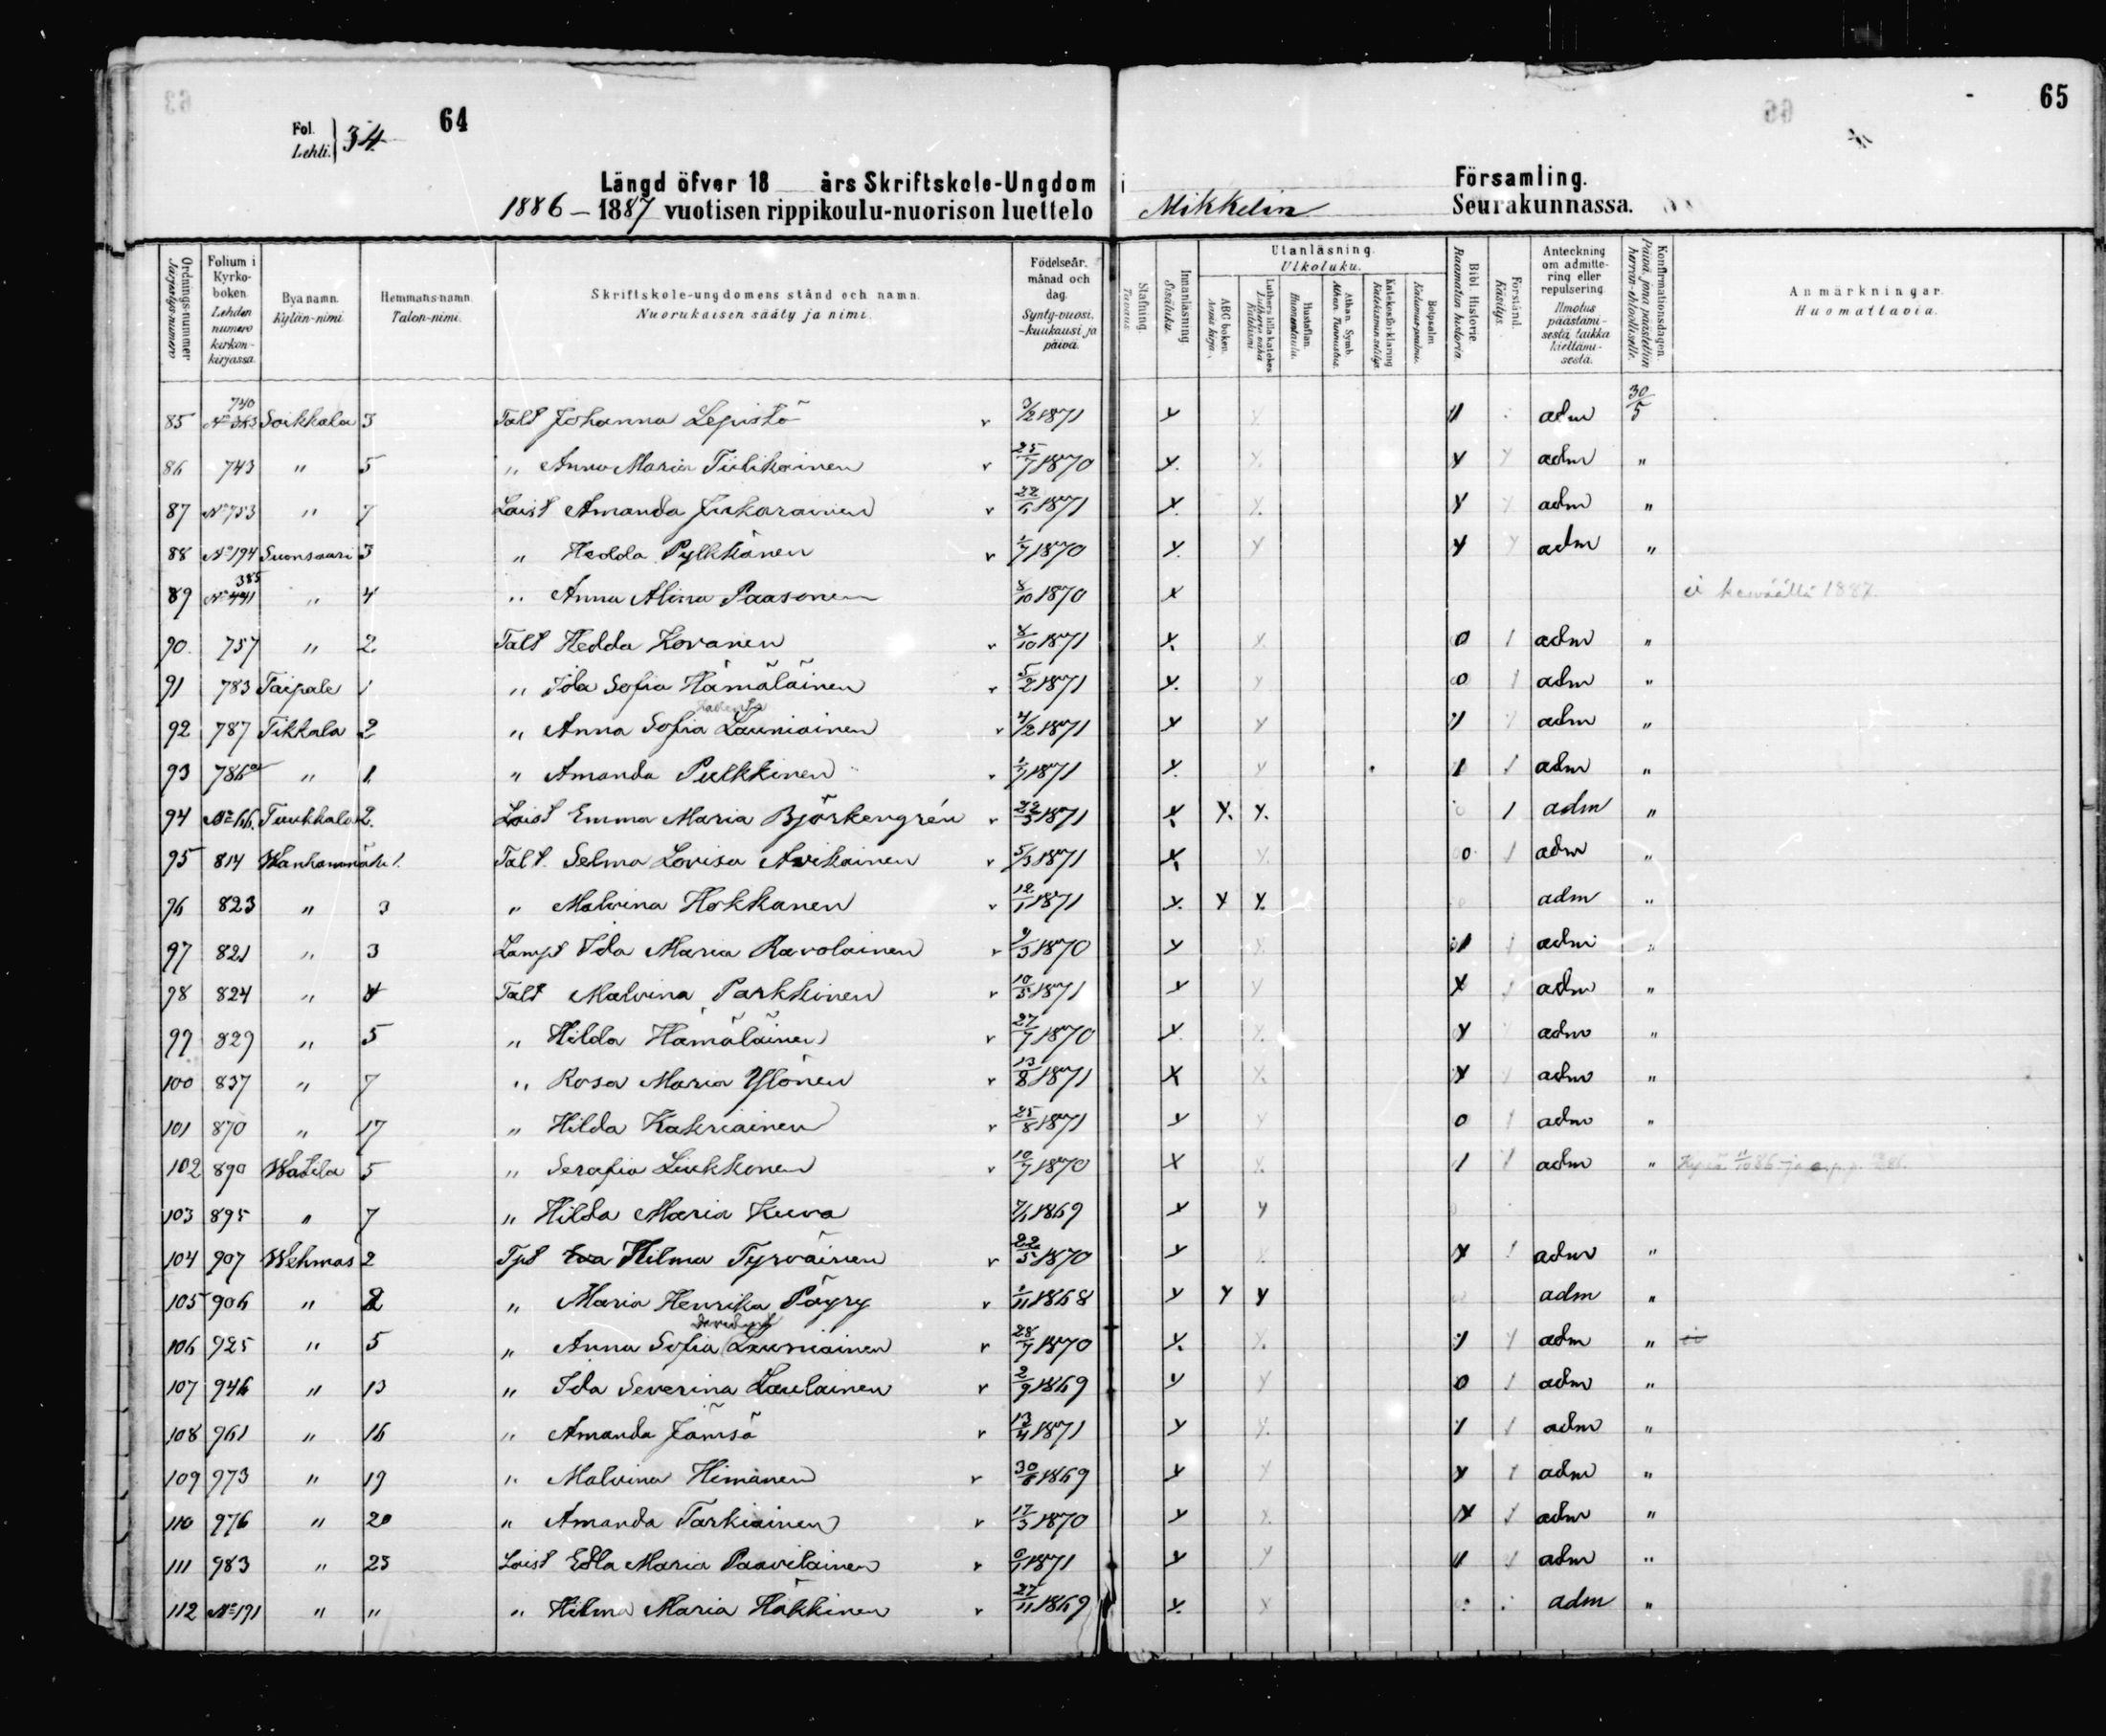 64
65
Fol.
Lehti. } 34
Längd öfver 18 års Skriftskole-Ungdom i Församling.
1886–1887 vuotisen rippikoulu-nuorison luettelo Mikkelin Seurakunnassa.
Ordnings-nummer Järjestys-numero
Folium i Kyrko-boken. Lehden numero kirkon-kirjassa.
Bya namn. Kylän-nimi
Hemmans-namn. Talon-nimi.
Skriftskole-ungdomens stånd och namn. Nuorukaisen sääty ja nimi.
Födelseår, månad och dag. Synty-vuosi, -kuukausi ja päivä.
Stafning. Tavaus.
Innanläsning Sisäluku.
Utanläsning. Ulkoluku.
ABC boken. Aapis kirja.
Luthers lilla katekes Lutherin vähä Katkismus
Hustaflan. Huoneentaulu.
Athan. Symb. Athan. Tunnustus.
Katekesförklaring Katekismus selitys.
Botpsalm. Katumus-psalmi.
Bibl. Historie. Raamatun historia.
Förstånd. Käsitys.
Anteckning om admittering eller repulsering. Ilmotus päästämisestä taikka kieltämisestä.
Konfirmationsdagen. Päivä, jona päästettiin herran-ehtoolliselle.
Anmärkningar. Huomattavia.
740
85 No 363 Soikkala 3 Talt Johanna Lepistö v 3/2 1871 y adm 30/5
86 743 " 5 " Anna Maria Tiilikainen v 25/7 1870 y. y y adm "
87 No 753 " 7 Loist Amanda v 1871 y adm "
88 No 194 Suonsaari 3 " Hedda Pylkkänen v 1/7 1870 y. y y y adm "
385
89 No 441 " 4 " Anna Alina Paasonen 8/10 1870 x ei keväällä 1887.
90. 757 " 2 Talt Hedda Kovanen v 8/10 1871 y. 0 1 adm "
91 783 Taipale 1 " Ida Sofia Hämäläinen v 5/2 1871 y. y 0 1 adm "
92 787 Tikkala 2 " Anna Sofia Launiainen v 4/2 1871 y y adm "
93 786 " 1 " Amanda Pulkkinen v 1871 y. y 1 1 adm "
94 No 66. Tuukkala 2. Loist Emma Maria Björkengrén v 22/3 1871 y. y. y. 1 adm "
95 814 Wanhanmäki 1. Talt. Selma Lovisa Avikainen v 5/3 1871 y 0 1 adm "
96 823 " 3 " Malvina Hokkanen v 12/1 1871 y. y y. adm "
97 821 " 3 Lampt Ida Maria Ravolainen v 9/3 1870 y adm "
98 824 " 4 Talt Malvina Parkkinen v 10/5 1871 y y adm "
99 829 " 5 " Hilda Hämäläinen v 27/7 1870 y. y adm "
100 837 " 7 " Rosa Maria Ylönen v 13/8 1871 x y adm "
101 870 " 17 " Hilda Kakriainen v 25/8 1871 y y 0 1 adm "
102 890 Watila 5 " Serafia Liukkonen v 10/7 1870 x 1 adm "
103 895 " 7 " Hilda Maria Kuva 1869 y y
104 907 Wehmas 2 Tyt Hilma Tyrväinen v 22/5 1870 y y adm "
105 906 " 2 " Maria Henrika Päyry v 1/11 1868 y y y adm "
106 925 " 5 " Anna Sofia Launiainen v 28/7 1870 y. y adm "
107 946 " 13 " Ida Severina Laulainen v 2/9 1869 y y 0 1 adm "
108 961 " 16 " Amanda Jämsä v 13/4 1871 y 1 1 adm "
109 973 " 19 " Malvina Himanen v 30/6 1869 y y 1 adm "
110 976 " 20 " Amanda Tarkiainen v 17/3 1870 y 1 adm "
111 983 " 23 Loist Edla Maria Paavilainen v 6/1 1871 y y adm "
112 No 191 " " " Hilma Maria Häkkinen v 27/11 1869 y. adm "